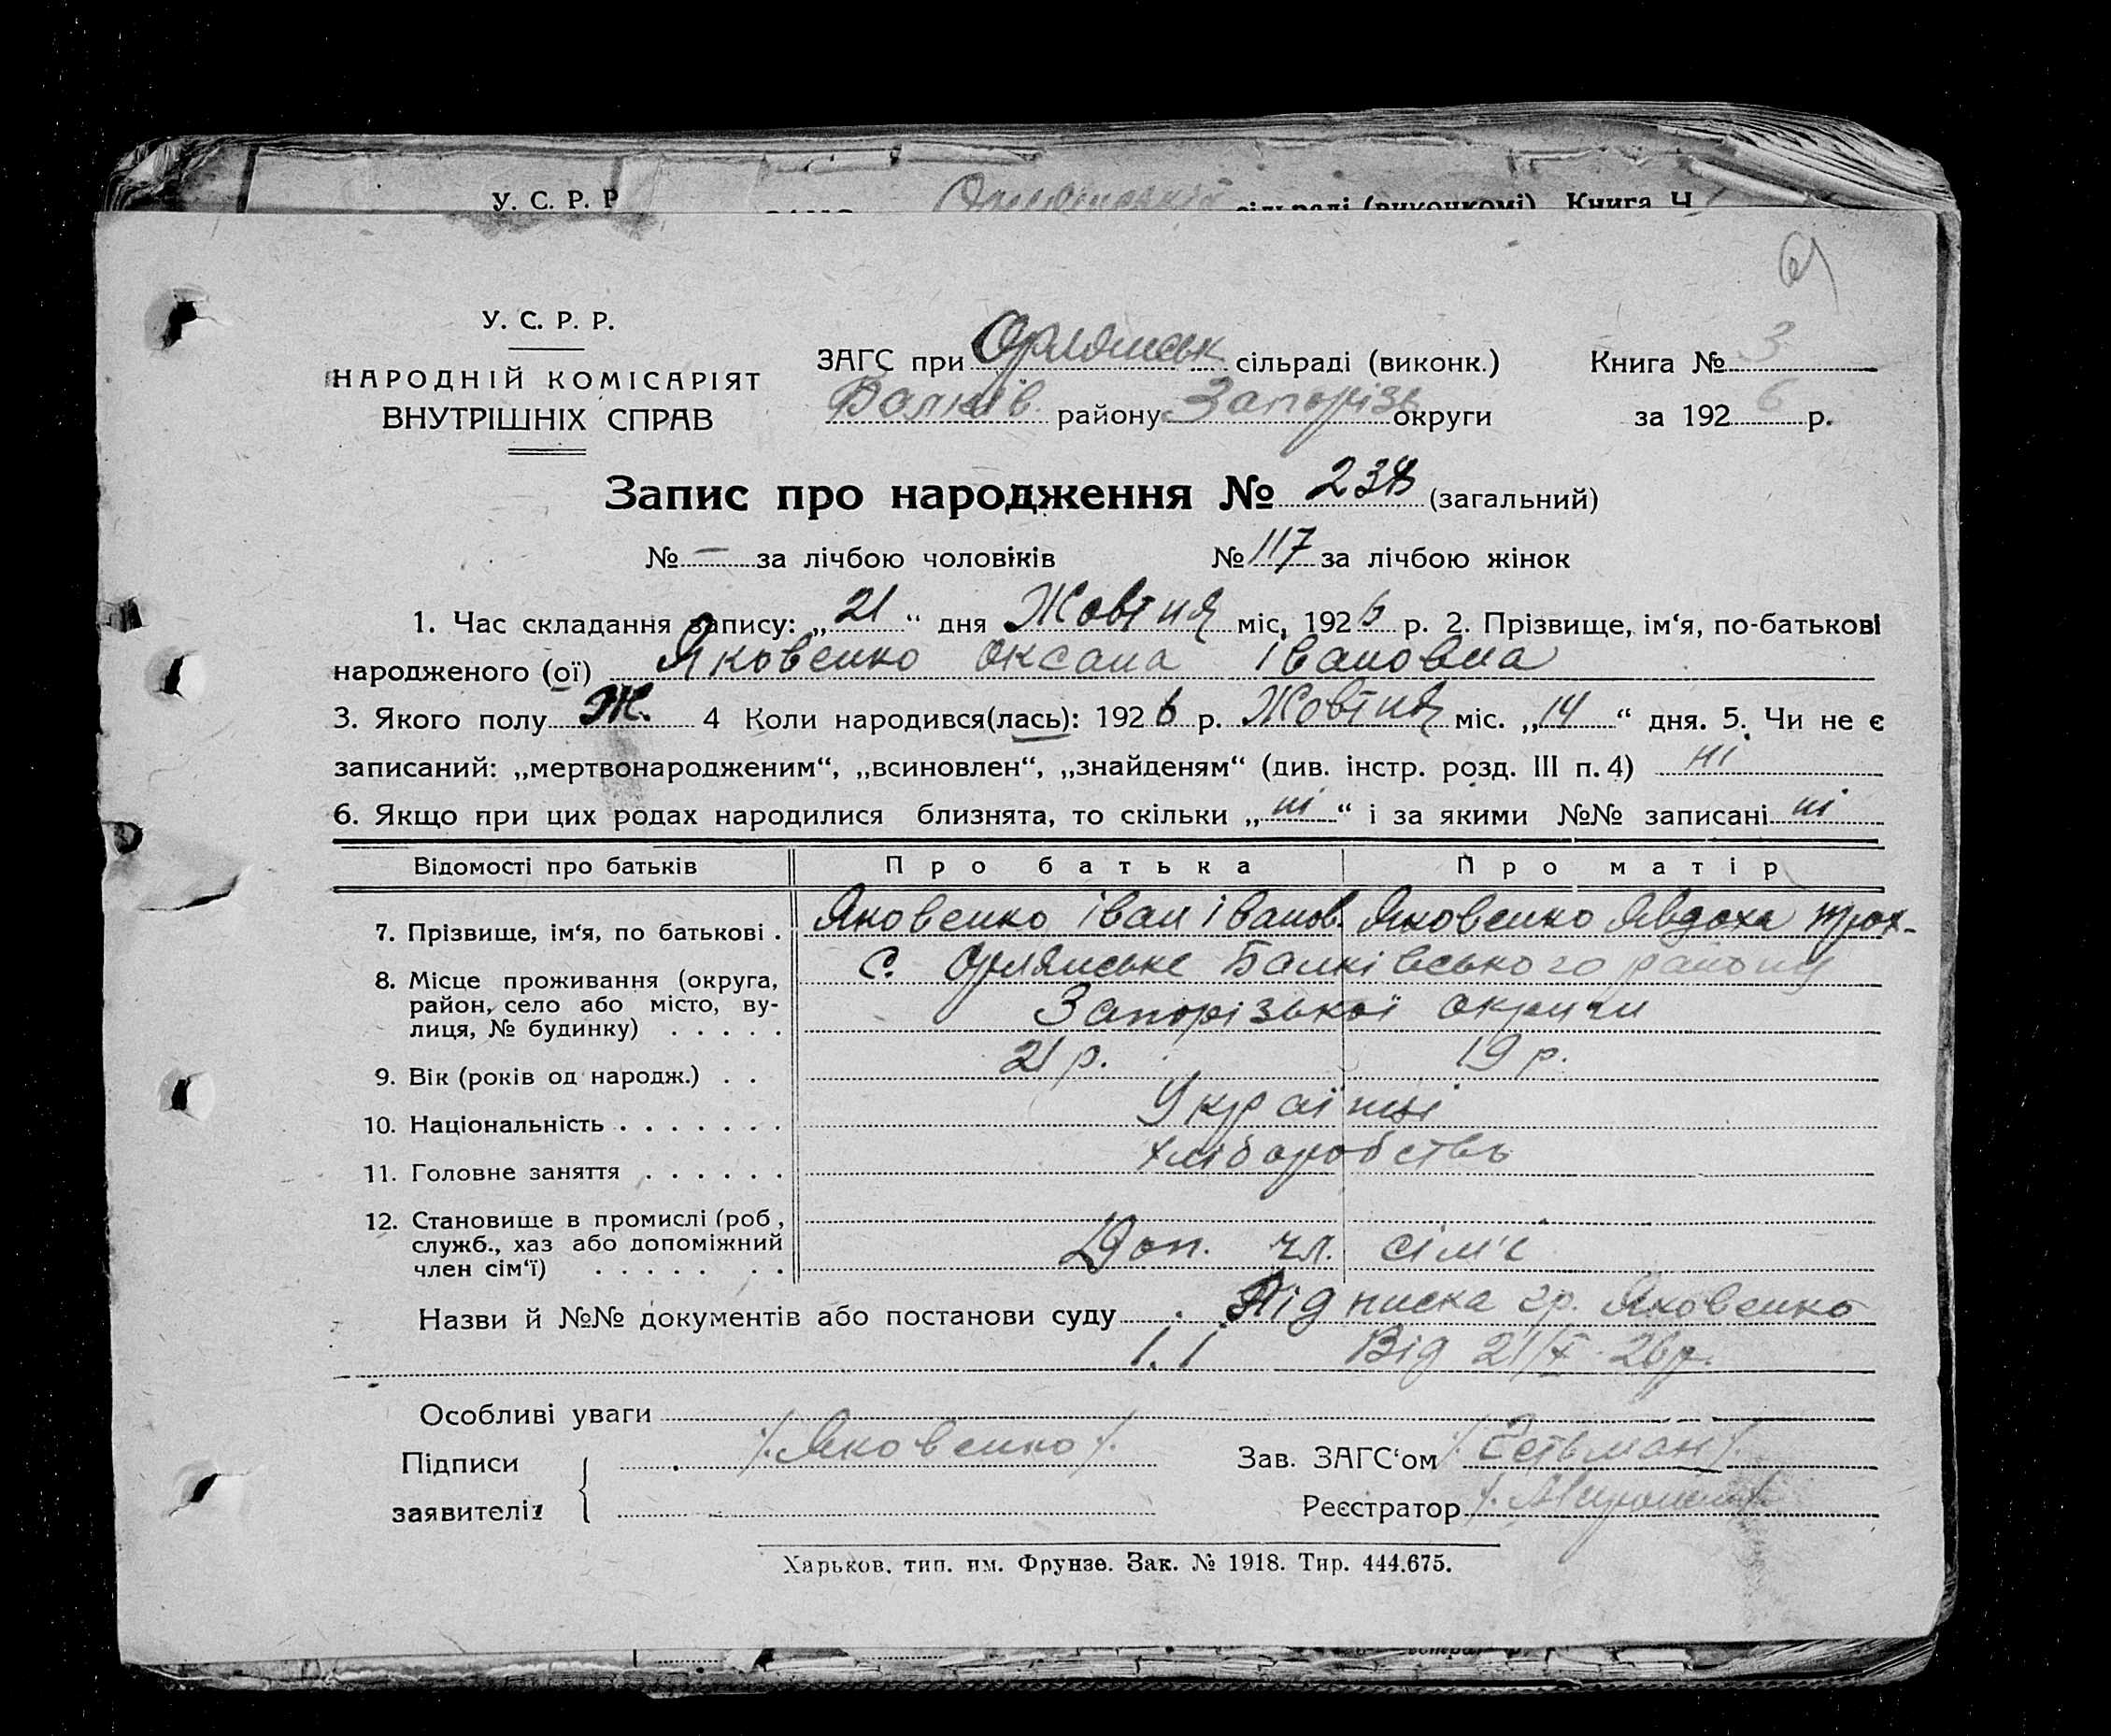 У. С. Р. Р
сільраді (виконкомі) Книга Ч
У. С. Р. Р.
НАРОДНІЙ КОМІСАРІЯТ
ВНУТРІШНІХ СПРАВ
ЗАГС при Орлянськ сільраді (виконк.) Книга № 3
Балків. району Запорізь округи за 1926 р.
Запис про народження № 238 (загальний)
№ — за лічбою чоловіків № 117 за лічбою жінок
1. Час складання запису: „21“ дня Жовтня міс, 1926 р. 2. Прізвище, ім‘я, по-батькові
народженого (ої) Яковенко Оксана Івановна
3. Якого полу Ж. 4 Коли народився(лась): 1926 р. Жовтня міс. „14“ дня. 5. Чи не є
записаний: „мертвонародженим“, „всиновлен“, „знайденям“ (див. інстр. розд. III п. 4) ні
6. Якщо при цих родах народилися близнята, то скільки „ні“ і за якими №№ записані ні
Відомості про батьків Про батька Про матір
7. Прізвище, ім‘я, по батькові . Яковенко Іван Іванов. Яковенко Явдоха Трох-
8. Місце проживання (округа, район, село або місто, вулиця, № будинку) . . . . . с. Орлянське Балківського району
Запорізької округи
9. Вік (років од народж.) . . 21 р. 19 р.
10. Національність . . . . . . . Українці
11. Головне заняття . . . . . . хліборобств
12. Становище в промислі (роб, служб., хаз або допоміжний член сім‘ї) . . . . . . . Доп. чл. сім'ї
Назви й №№ документів або постанови суду Підписка гр. Яковенко
І. І Від 21/X 26 р.
Особливі уваги
Підписи /.Яковенко/. Зав. ЗАГС‘ом /Гетьман/.
заявителів Реєстратор
Харьков. тип. им. Фрунзе. Зак. № 1918. Тир. 444.675.